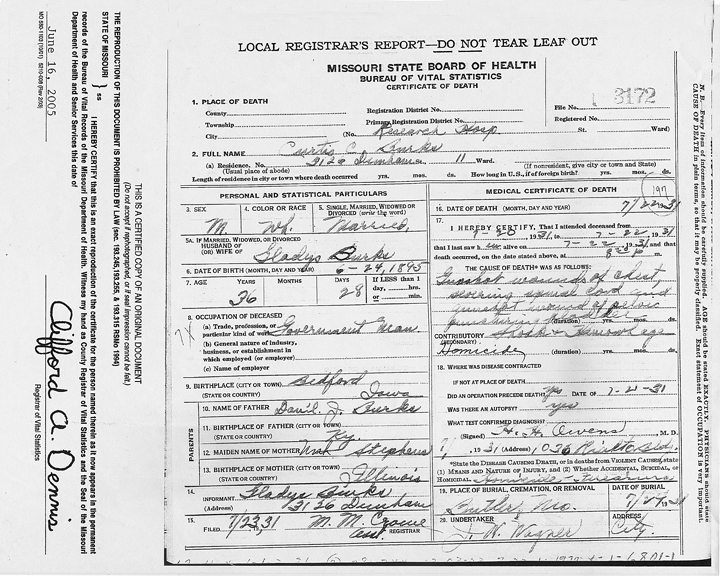 LOCAL REGISTRAR'S REPORT—DO NOT TEAR LEAF OUT
MISSOURI STATE BOARD OF HEALTH
BUREAU OF VITAL STATISTICS
CERTIFICATE OF DEATH
1. PLACE OF DEATH
County
Registration District No.
File No. 3172
Township
Primary Registration District No.
Registered No.
City (No. Research Hosp St. Ward)
2. FULL NAME Curtis C. Burks
(a) Residence. No. 3126 11 Ward.
(Usual place of abode) (If nonresident, give city or town and State)
Length of residence in city or town where death occurred yrs. mos. ds. How long in U.S., if of foreign birth? yrs. mos. ds.
PERSONAL AND STATISTICAL PARTICULARS
3. SEX 4. COLOR OR RACE 5. SINGLE, MARRIED, WIDOWED OR
DIVORCED (write the word)
M. Wh. Married
5A. IF MARRIED, WIDOWED, OR DIVORCED
HUSBAND OF
(OR) WIFE OF Gladys Burks
6. DATE OF BIRTH (MONTH, DAY AND YEAR) 6-24, 1895
7. AGE YEARS MONTHS DAYS If LESS than 1
day, hrs.
or min.
36 28
8. OCCUPATION OF DECEASED
(a) Trade, profession, or
particular kind of work Government man
(b) General nature of industry,
business, or establishment in
which employed (or employer)
(c) Name of employer
9. BIRTHPLACE (CITY OR TOWN) Bedford
(STATE OR COUNTRY) Iowa
PARENTS
10. NAME OF FATHER J. Burks
11. BIRTHPLACE OF FATHER (CITY OR TOWN)
(STATE OR COUNTRY) Ky.
12. MAIDEN NAME OF MOTHER Stephens
13. BIRTHPLACE OF MOTHER (CITY OR TOWN)
(STATE OR COUNTRY) Illinois
14. INFORMANT Gladys Burks
(Address) 3126
15. FILED 7/23, 31 M. M. REGISTRAR
MEDICAL CERTIFICATE OF DEATH
16. DATE OF DEATH (MONTH, DAY AND YEAR) 7/22 1931
17. I HEREBY CERTIFY, That I attended deceased from
7-20, 1931, to 7-22, 1931
that I last saw h im alive on 7-22, 1931, and that
death occurred, on the date stated above, at m.
THE CAUSE OF DEATH* WAS AS FOLLOWS:
Gunshot wounds of chest,
severing spinal cord and
gunshot wound of pelvis
(duration) yrs. mos. ds.
CONTRIBUTORY Shock & Hemorrhage
(SECONDARY)
Homicide (duration) yrs. mos. ds.
18. WHERE WAS DISEASE CONTRACTED
IF NOT AT PLACE OF DEATH
DID AN OPERATION PRECEDE DEATH? yes DATE OF 7-21-31
WAS THERE AN AUTOPSY? yes
WHAT TEST CONFIRMED DIAGNOSIS?
(Signed) H. H. Owens, M. D.
, 1931 (Address) 1036 Rialto Bld.
*State the DISEASE CAUSING DEATH, or in deaths from VIOLENT CAUSES, state
(1) MEANS AND NATURE OF INJURY, and (2) Whether ACCIDENTAL, SUICIDAL, or
HOMICIDAL. Homicide - Firearms
19. PLACE OF BURIAL, CREMATION, OR REMOVAL DATE OF BURIAL
Butler, Mo. 1931
20. UNDERTAKER ADDRESS
Wagner City.
N. B.—Every item of information should be carefully supplied. AGE should be stated EXACTLY. PHYSICIANS should state
CAUSE OF DEATH in plain terms, so that it may be properly classified. Exact statement of OCCUPATION is very important.
THIS IS A CERTIFIED COPY OF AN ORIGINAL DOCUMENT
(Do not accept if rephotographed, or if seal impression cannot be felt.)
THE REPRODUCTION OF THIS DOCUMENT IS PROHIBITED BY LAW (sec. 193.245, 193.255, & 193.315 RSMo 1994)
STATE OF MISSOURI } ss
I HEREBY CERTIFY that this is an exact reproduction of the certificate for the person named therein as it now appears in the permanent
records of the Bureau of Vital Records of the Missouri Department of Health. Witness my hand as County Registrar of Vital Statistics and the Seal of the Missouri
Department of Health and Senior Services this date of
June 16, 2005
Clifford A. Dennis
Registrar of Vital Statistics